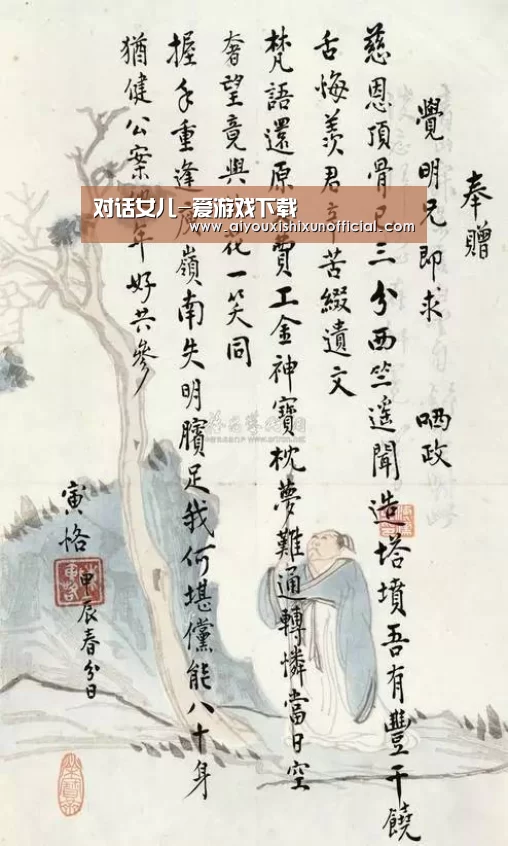 奉贈
覺明兄即求 哂政
慈恩頂骨已三分西竺遙聞造塔墳吾有豐干饒
舌悔羨君辛苦綴遺文
梵語還原費工金神寶枕夢難通轉憐當日空
奢望竟與花一笑同
握手重逢嶺南失明臏足我何堪儻能八十身
猶健公案年好共參
寅恪
甲辰春分日
榮寶齋
对话女儿-爱游戏下载
www.aiyouxishixunofficial.com